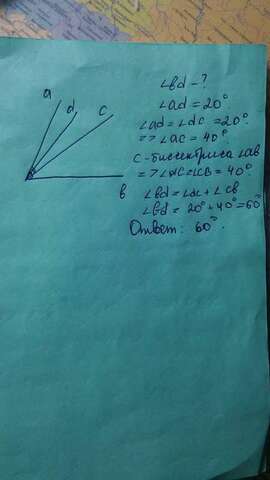 ∠bd - ?
a
∠ad = 20°.
d
c
∠ad = ∠dc = 20°.
=> ∠ac = 40°.
c - биссектриса ∠ab
=> ∠ac = ∠cb = 40°.
b
∠bd = ∠dc + ∠cb
∠bd = 20° + 40° = 60°
Ответ: 60°.